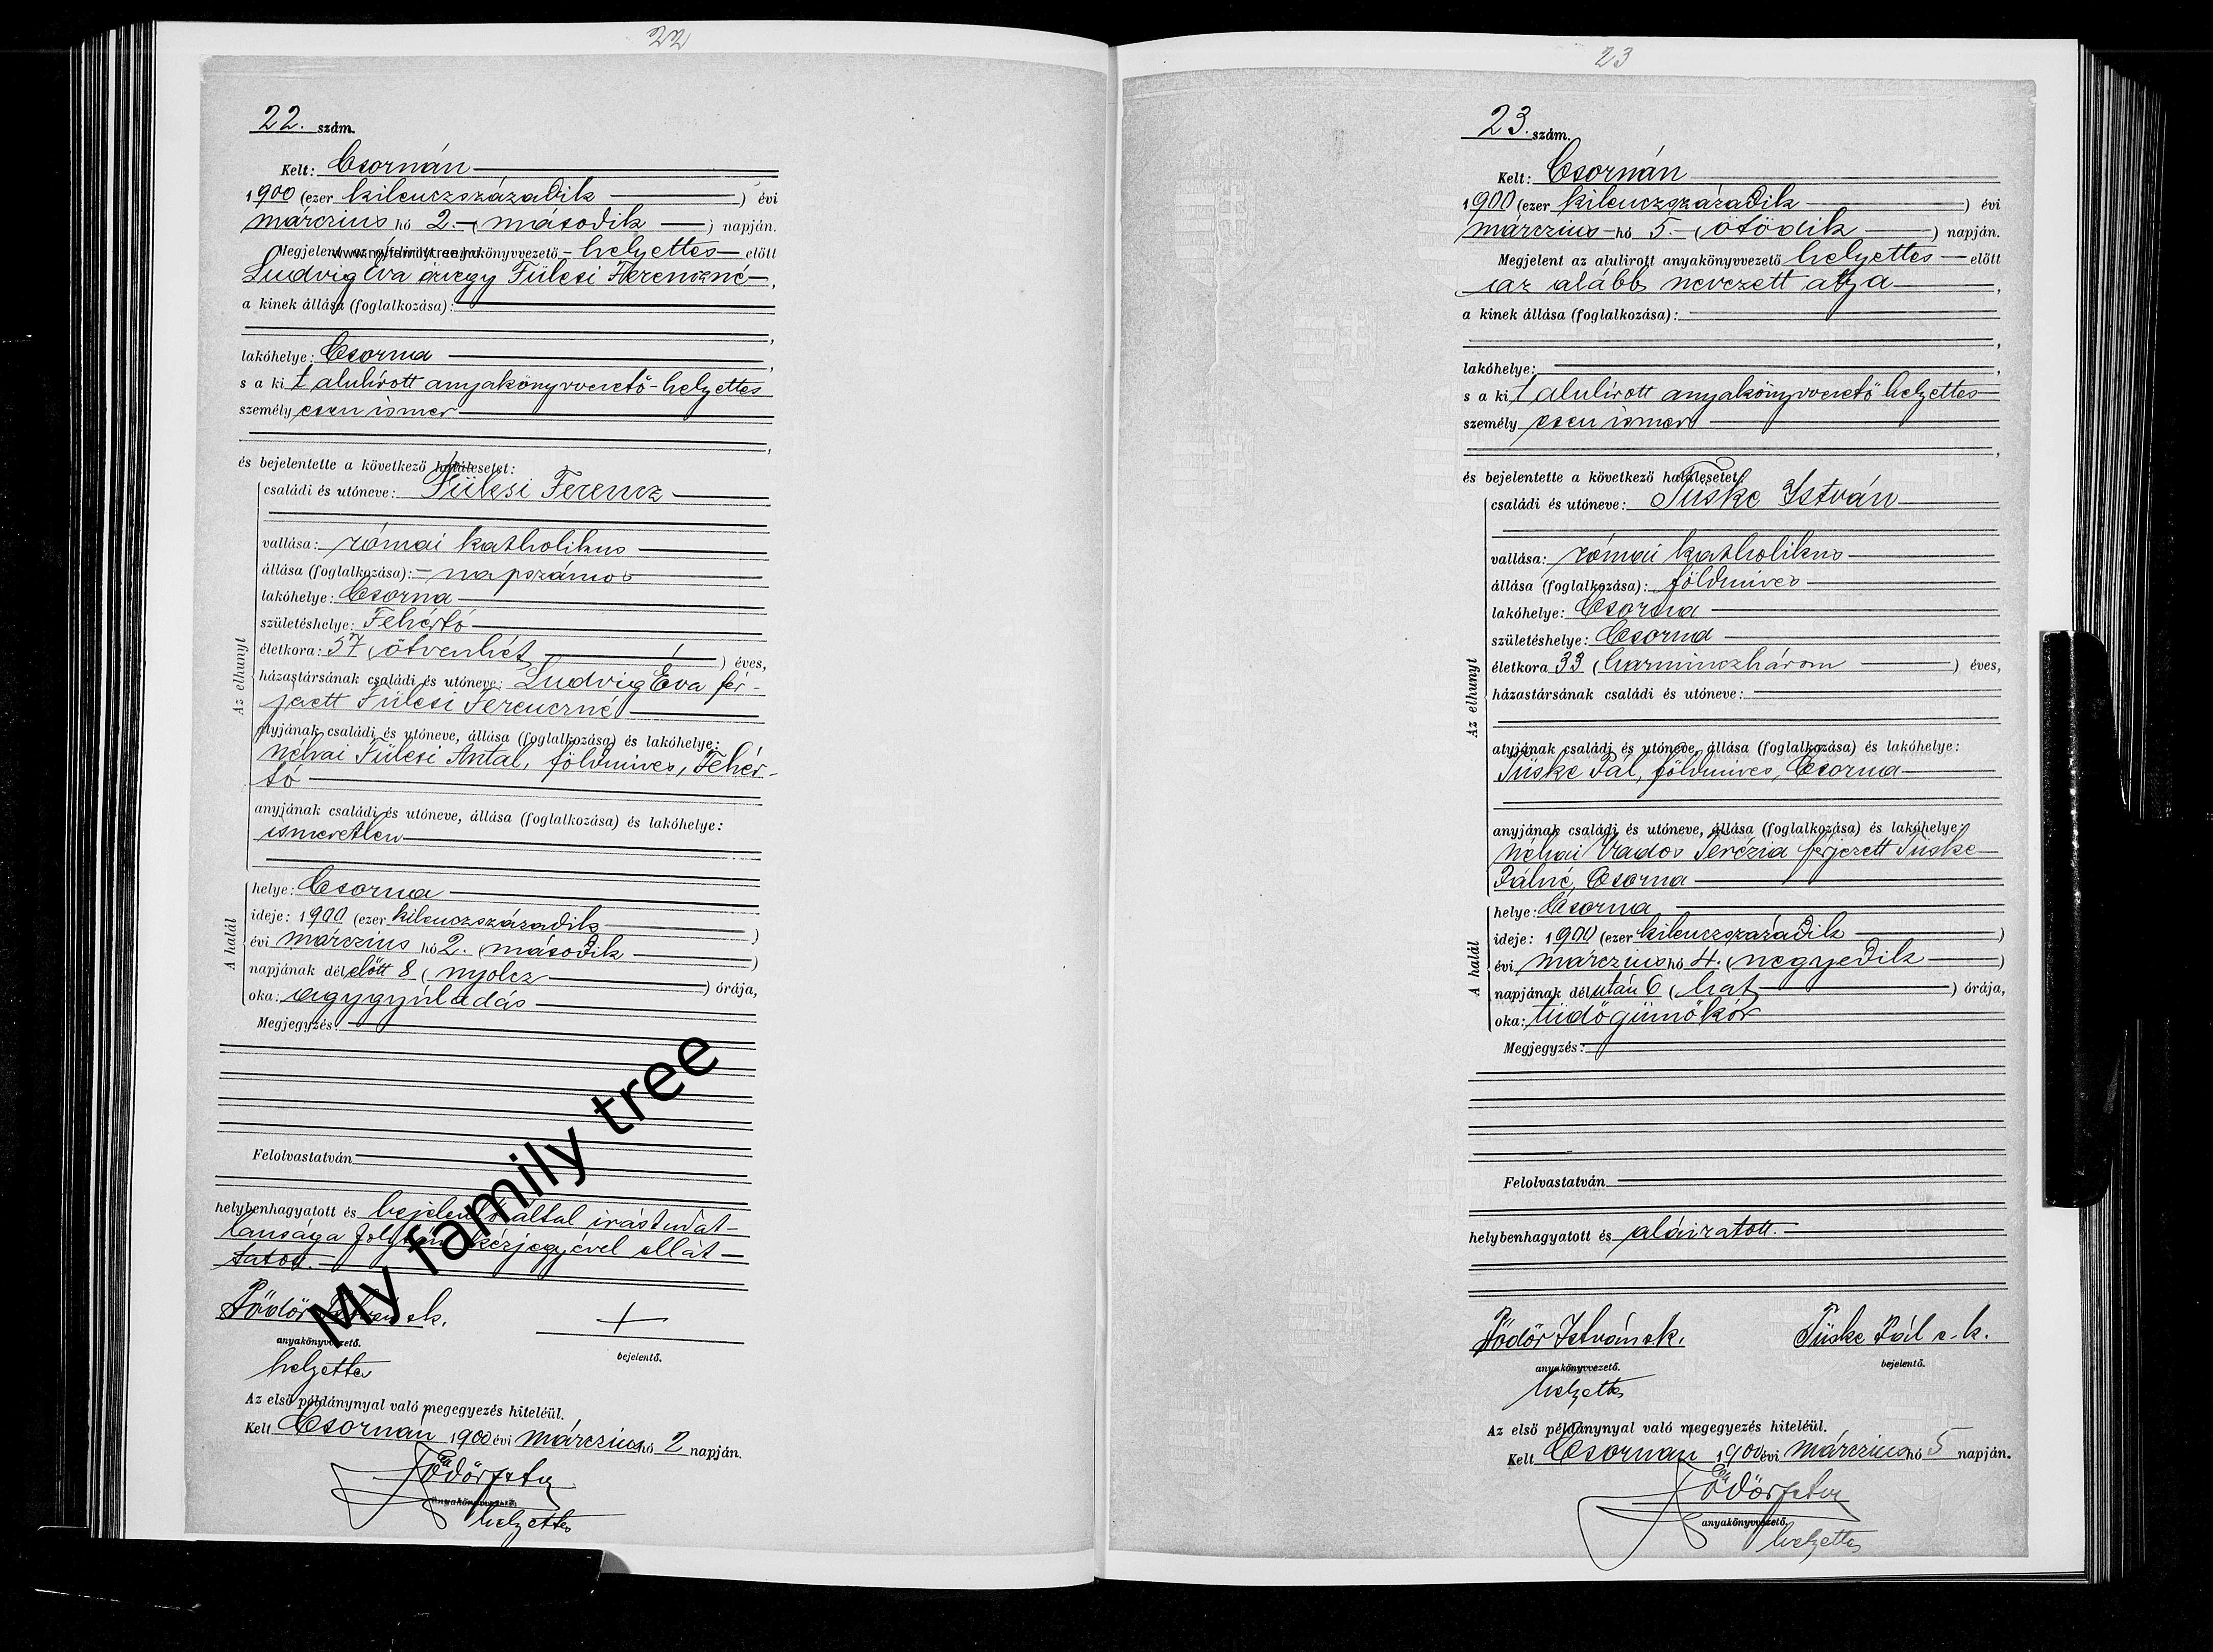 22
22. szám.
Kelt: Csornán
1900 (ezer kilenczszázadik) évi
márczius hó 2. (második) napján.
Megjelent az alulirott anyakönyvvezető-helyettes előtt
www.myfamilytree.hu
Ludvig Éva özvegy Fülesi Ferenczné,
a kinek állása (foglalkozása):
lakóhelye: Csorna,
s a kit alulírott anyakönyvvezető-helyettes
személyesen ismer,
és bejelentette a következő halálesetet:
Az elhunyt
családi és utóneve: Fülesi Ferencz
vallása: római katholikus
állása (foglalkozása): napszámos
lakóhelye: Csorna
születéshelye: Fehértó
életkora: 57 (ötvenhét) éves,
házastársának családi és utóneve: Ludvig Éva fér-
jezett Fülesi Ferenczné
atyjának családi és utóneve, állása (foglalkozása) és lakóhelye:
néhai Fülesi Antal, földmíves, Fehér-
tó
anyjának családi és utóneve, állása (foglalkozása) és lakóhelye:
ismeretlen
A halál
helye: Csorna
ideje: 1900 (ezer kilenczszázadik)
évi márczius hó 2. (második)
napjának délelőtt 8 (nyolcz) órája,
oka: agygyúladás
Megjegyzés:
Felolvastatván
helybenhagyatott és bejelentő által irástudat-
lansága folytán kézjegyével ellát-
tatott.
Födör István sk. +
anyakönyvvezető. bejelentő.
helyettes
Az első példánynyal való megegyezés hiteléül.
Kelt Csornán 1900 évi márczius hó 2 napján.
Födör István
anyakönyvvezető
helyettes
My family tree
23
23. szám.
Kelt: Csornán
1900 (ezer kilenczszázadik) évi
márczius hó 5. (ötödik) napján.
Megjelent az alulirott anyakönyvvezető helyettes előtt
az alább nevezett atya,
a kinek állása (foglalkozása):
lakóhelye:
s a kit alulírott anyakönyvvezető helyettes
személyesen ismer,
és bejelentette a következő halálesetet:
Az elhunyt
családi és utóneve: Tüske István
vallása: római katholikus
állása (foglalkozása): földmíves
lakóhelye: Csorna
születéshelye: Csorna
életkora 33 (harminczhárom) éves,
házastársának családi és utóneve:
atyjának családi és utóneve, állása (foglalkozása) és lakóhelye:
Tüske Pál, földmíves, Csorna
anyjának családi és utóneve, állása (foglalkozása) és lakóhelye:
néhai Vados Terézia férjezett Tüske
Pálné, Csorna
A halál
helye: Csorna
ideje: 1900 (ezer kilenczszázadik)
évi márczius hó 4. (negyedik)
napjának délután 6 (hat) órája,
oka: tüdőgümőkór
Megjegyzés:
Felolvastatván
helybenhagyatott és aláíratott.
Födör István sk. Tüske Pál s. k.
anyakönyvvezető. bejelentő.
helyettes
Az első példánynyal való megegyezés hiteléül.
Kelt Csornán 1900 évi márczius hó 5 napján.
Födör István
anyakönyvvezető.
helyettes